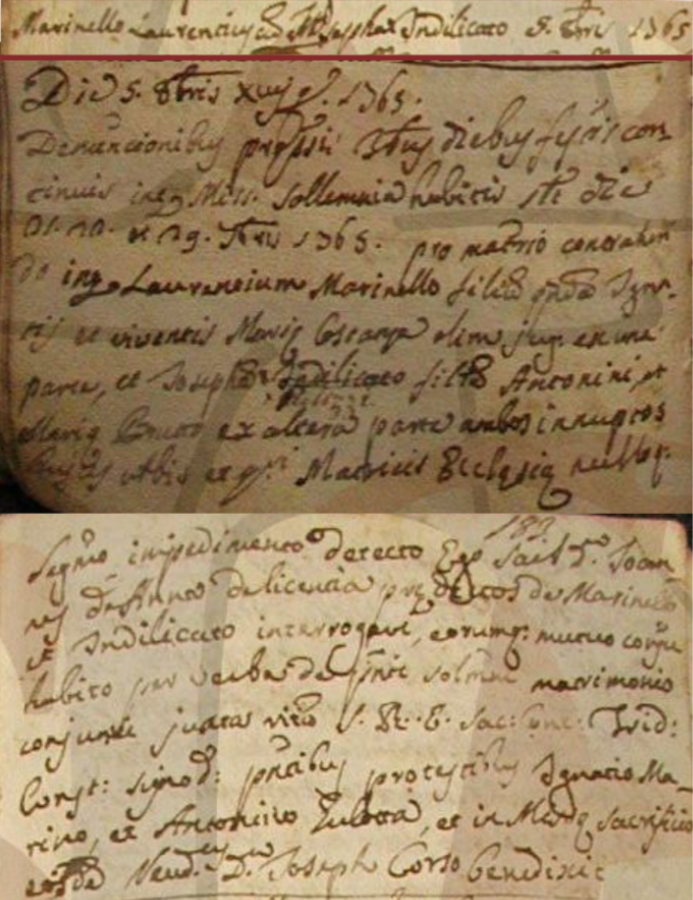 Marinello Laurentius cum M. Josepha Indilicato 5. 8bris 1765
Die 5. 8bris 1765.
Denuncionibus premissis 3bus diebus festis con-
tinuis inter Miss. sollemnia habitis die
21. 29. 7bris 1765. pro matrio contrahen
do inter Laurentium Marinello filium Igna-
tij et viventis Marię Costanza olim jug. ex una
parte, et Josepham Indilicato filiam Antonini, et
Marię Bruno ex altera parte ambos innuptos
hujus urbis et Matricis Ecclesię nulloq:
legmo impedimento detecto Ego Sac. D. Joan
nes de Anna de licentia prędictos de Marinello
et Indilicato interrogavi, eorumq: mutuo consensu
habito per verba de pnti solmr matrimonio
conjunxi juxta ritum S. R. E. Sac: Conc: Trid:
Const: synod: pntibus pro testibus Ignatio Ma-
rino, et Antonino et in Missę sacrificio
Revd. D. Joseph Corso benedixit